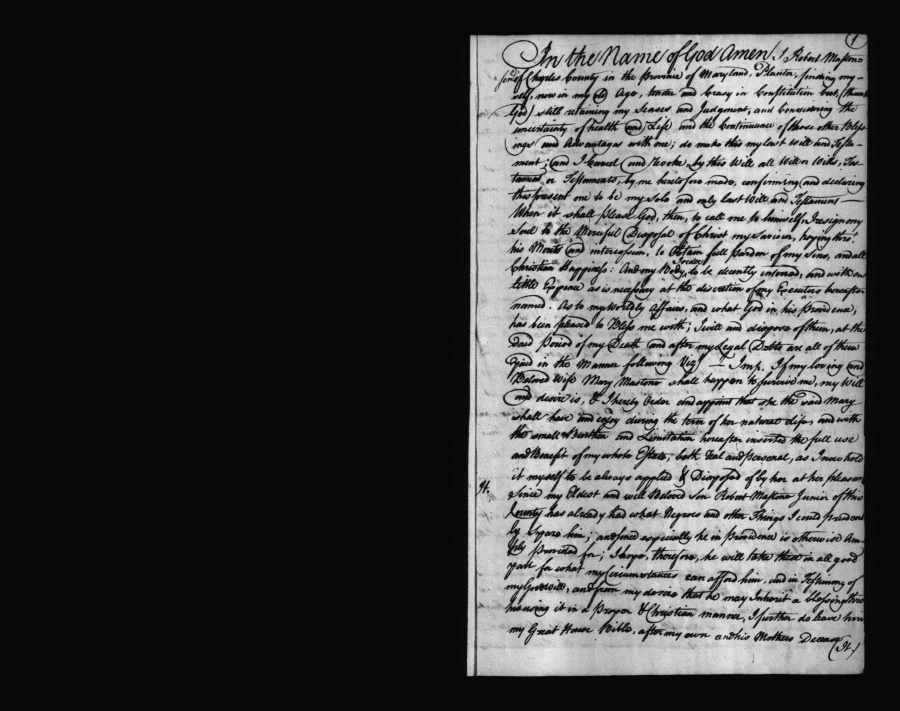 1
In the Name of God Amen! I Robert Mastone
Senr of Charles County in the Province of Maryland, Planter, finding my-
self, now in my Age, tender and Crasy in Constitution but, (thank
God) still retaining my Senses and Judgment, and Considering the
uncertainty of health and Life and the Continuance of those other Bless-
ings and Advantages with one; do make this my last Will and Testa-
ment; and I Cancel and revoke, by this Will all Will or Wills, Tes-
tament or Testaments, by me heretofore made, confirming and declaring
this present one to be my Sole and only last Will and Testament
When it shall please God, then, to call me to himself, I resign my
Soul to the Merciful Disposal of Christ my Saviour, hoping thro'
his Merits and intercession, to Obtain full pardon of my Sins, and all
Christian Happiness: And my Body, I order, to be decently interred, and with as
little Expence as is necessary at the discretion of my Executors hereafter
named. As to my Worldly Affairs, and what God in his providence,
has been pleased to Bless me with; I will and dispose of them, at the
said period of my Death and after my Legal Debts are all of them
paid in the Manner following Viz Imp. If my loving and
Beloved Wife Mary Mastone shall happen to survive me, my Will
and desire is, & I hereby Order and appoint that she the said Mary
shall have and enjoy during the term of her natural life, and with
the small Burthen and Limitation hereafter inserted the full use
and Benefit of my whole Estate, both Real and personal, as I now hold
it myself to be always applied & Disposed of by her at her pleasure
It. Since my Eldest and well Beloved Son Robert Mastone Junior of this
County has already had what Negroes and other Things I could prudent
ly Spare him; and since especially he in Providence is otherwise Am-
ply provided for; I hope, therefore, he will take these in all good
part for what my Circumstances can afford him, and in Testimony of
my Goodwill, and from my desire that he may Inherit a blessing thro
his using it in a Proper & Christian manner, I further do leave him
my Great House Bible, after my own and his Mothers Decease
(It.)